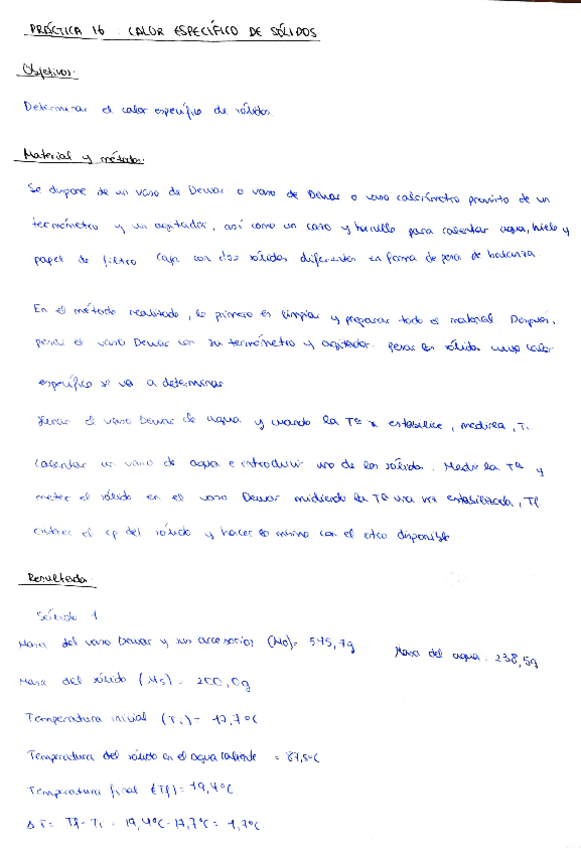 PRÁCTICA 16 : CALOR ESPECÍFICO DE SÓLIDOS
Objetivos:
Determinar el calor específico de sólidos
Material y método:
Se dispone de un vaso de Dewar o vaso de Dewar o vaso calorímetro provisto de un
termómetro y un agitador, así como un cazo y hornillo para calentar agua, hielo y
papel de filtro Caja con dos sólidos diferentes en forma de pesa de balanza.
En el método realizado, lo primero es limpiar y preparar todo el material. Después,
pesar el vaso Dewar con su termómetro y agitador. pesar los sólidos cuyo calor
específico se va a determinar.
Llenar el vaso Dewar de agua y cuando la Tª se estabilice, medirla, T₁
Calentar un vaso de agua e introducir uno de los sólidos. Medir la Tª y
meter el sólido en el vaso Dewar midiendo la Tª una vez estabilizada, Tf
el cp del sólido y hacer lo mismo con el otro disponible
Resultado
Sólido 1
Masa del vaso Dewar y sus accesorios (Mo)= 545,7g
Masa del agua: 238,5g
Masa del sólido (Ms) = 200,0g
Temperatura inicial (T₁) = 17,7ºC
Temperatura del sólido en el agua caliente = 87,5ºC
Temperatura final (Tf) = 19,4ºC
ΔT= Tf- T₁ = 19,4ºC-17,7ºC = 1,7ºC